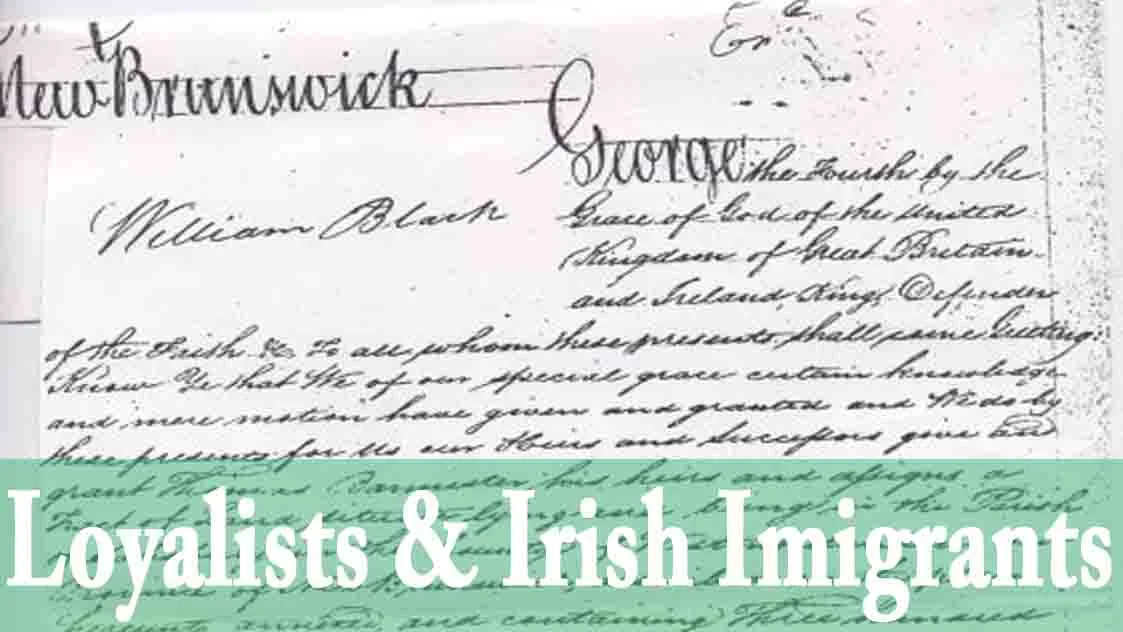 New Brunswick
George the Fourth by the
William Black
Grace of God of the United
Kingdom of Great Britain
and Ireland King, Defender
of the Faith &c To all whom these presents shall come Greeting:
Know Ye that We of our special grace certain knowledge
and mere motion have given and granted and We do by
these presents for Us our Heirs and Successors give and
grant Thomas Bannister his heirs and assigns a
Tract of Land situate lying and being in the Parish
Loyalists & Irish Imigrants
and containing Three